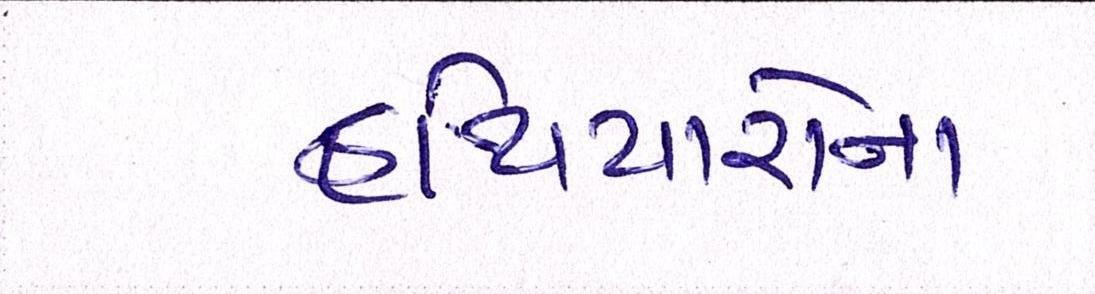 હથિયારોના